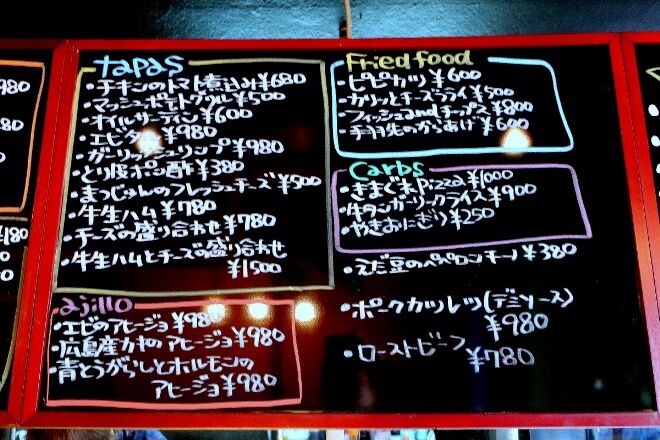 tapas
・チキンのトマト煮込み¥680
・マッシュポテトグリル¥500
・オイルサーディン¥600
・エビタル ¥980
・ガーリックシュリンプ¥980
・とり豚ポン酢¥380
・まっじゅんのフレッシュチーズ¥500
・牛生ハム¥780
・チーズの盛り合わせ¥780
・牛生ハムとチーズの盛り合わせ
¥1500
ajillo
・エビのアヒージョ¥980
・広島産カキのアヒージョ¥980
・青とうがらしとホルモンの
アヒージョ¥980
Fried food
・ピピカツ¥600
・カリッとチーズフライ¥500
・フィッシュandチップス¥800
・手羽先のからあげ¥600
Carbs
・きまぐれPizza¥1000
・牛タンガーリックライス¥900
・やきおにぎり¥250
・えだ豆のペペロンチーノ¥380
・ポークカツレツ(デミソース)
¥980
・ローストビーフ
¥780
980
980
¥480